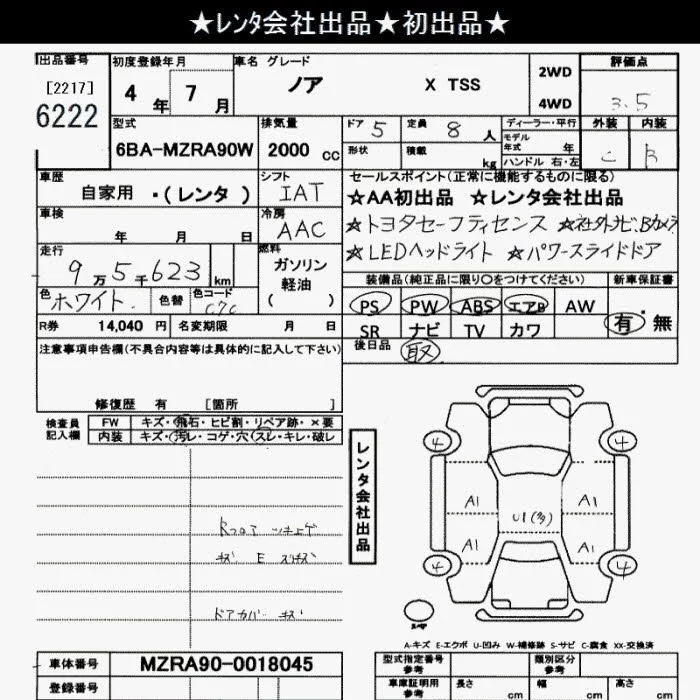 ★レンタ会社出品★初出品★
出品番号 初度登録年月 車名 グレード 評価点
[2217] 4 年 7 月 ノア X TSS 2WD
6222 4WD 3.5
型式 排気量 ドア 5 定員 8 人 ディーラー・平行 外装 内装
6BA-MZRA90W 2000 cc 形状 積載 kg モデル年式 年 C B
ハンドル 右・左
車歴 シフト セールスポイント(正常に機能するものに限る)
自家用 ・(レンタ) IAT ☆AA初出品 ☆レンタ会社出品
車検 年 月 日 冷房 AAC ☆トヨタセーフティセンス ☆社外ナビ.Bカメラ
走行 燃料 ☆LEDヘッドライト ☆パワースライドドア
9万5千623 km ガソリン 装備品(純正品に限り○をつけてください) 新車保証書
軽油
( )
色 ホワイト. 色替 色コード PS PW ABS エアB AW 有・無
R券 14,040 円 名変期限 月 日 SR ナビ TV カワ
注意事項申告欄(不具合内容等は具体的に記入して下さい) 後日品 取
修復歴 有 [箇所 ]
検査員 FW キズ・飛石・ヒビ割・リペア跡・×要
記入欄 内装 キズ・汚レ・コゲ・穴・スレ・キレ・破レ
レンタ会社出品
4 4
A1 A1
U1(多)
A1 A1
4 4
キズ E
ドアカバー キズ
A-キズ E-エクボ U-凹み W-補修跡 S-サビ C-腐食 XX-交換済
車体番号 MZRA90-0018045 型式指定番号 参考 類別区分 参考
登録番号 車庫証明用 参考 長さ cm 幅 cm 高さ cm